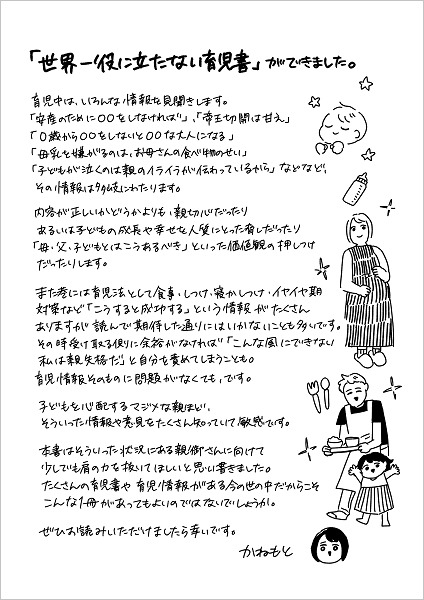 「世界一役に立たない育児書」ができました。
育児中は、いろんな情報を見聞きします。
「安産のために〇〇をしなければ」、「帝王切開は甘え」
「0歳から〇〇をしないと〇〇な大人になる」
「母乳を嫌がるのは、お母さんの食べ物のせい」
「子どもが泣くのは親のイライラが伝わっているから」などなど、
その情報は多岐にわたります。
内容が正しいかどうかよりも、親切心だったり
あるいは子どもの成長や幸せを人質にとった脅しだったり
「母・父・子どもとはこうあるべき」といった価値観の押しつけ
だったりします。
また巷には育児法として食事・しつけ・寝かしつけ・イヤイヤ期
対策など「こうすると成功する」という情報がたくさん
ありますが読んで期待した通りにはいかないことも多いです。
その時受け取る側に余裕がなければ「こんな風にできない
私は親失格だ」と自分を責めてしまうことも。
育児情報そのものに問題がなくても、です。
子どもを心配するマジメな親ほど、
そういった情報や意見をたくさん知っていて敏感です。
本書はそういった状況にある親御さんに向けて
少しでも肩の力を抜いてほしいと思い書きました。
たくさんの育児書や育児情報がある今の世の中だからこそ
こんな1冊があってもよいのではないでしょうか。
ぜひお読みいただけましたら幸いです。
かねもと